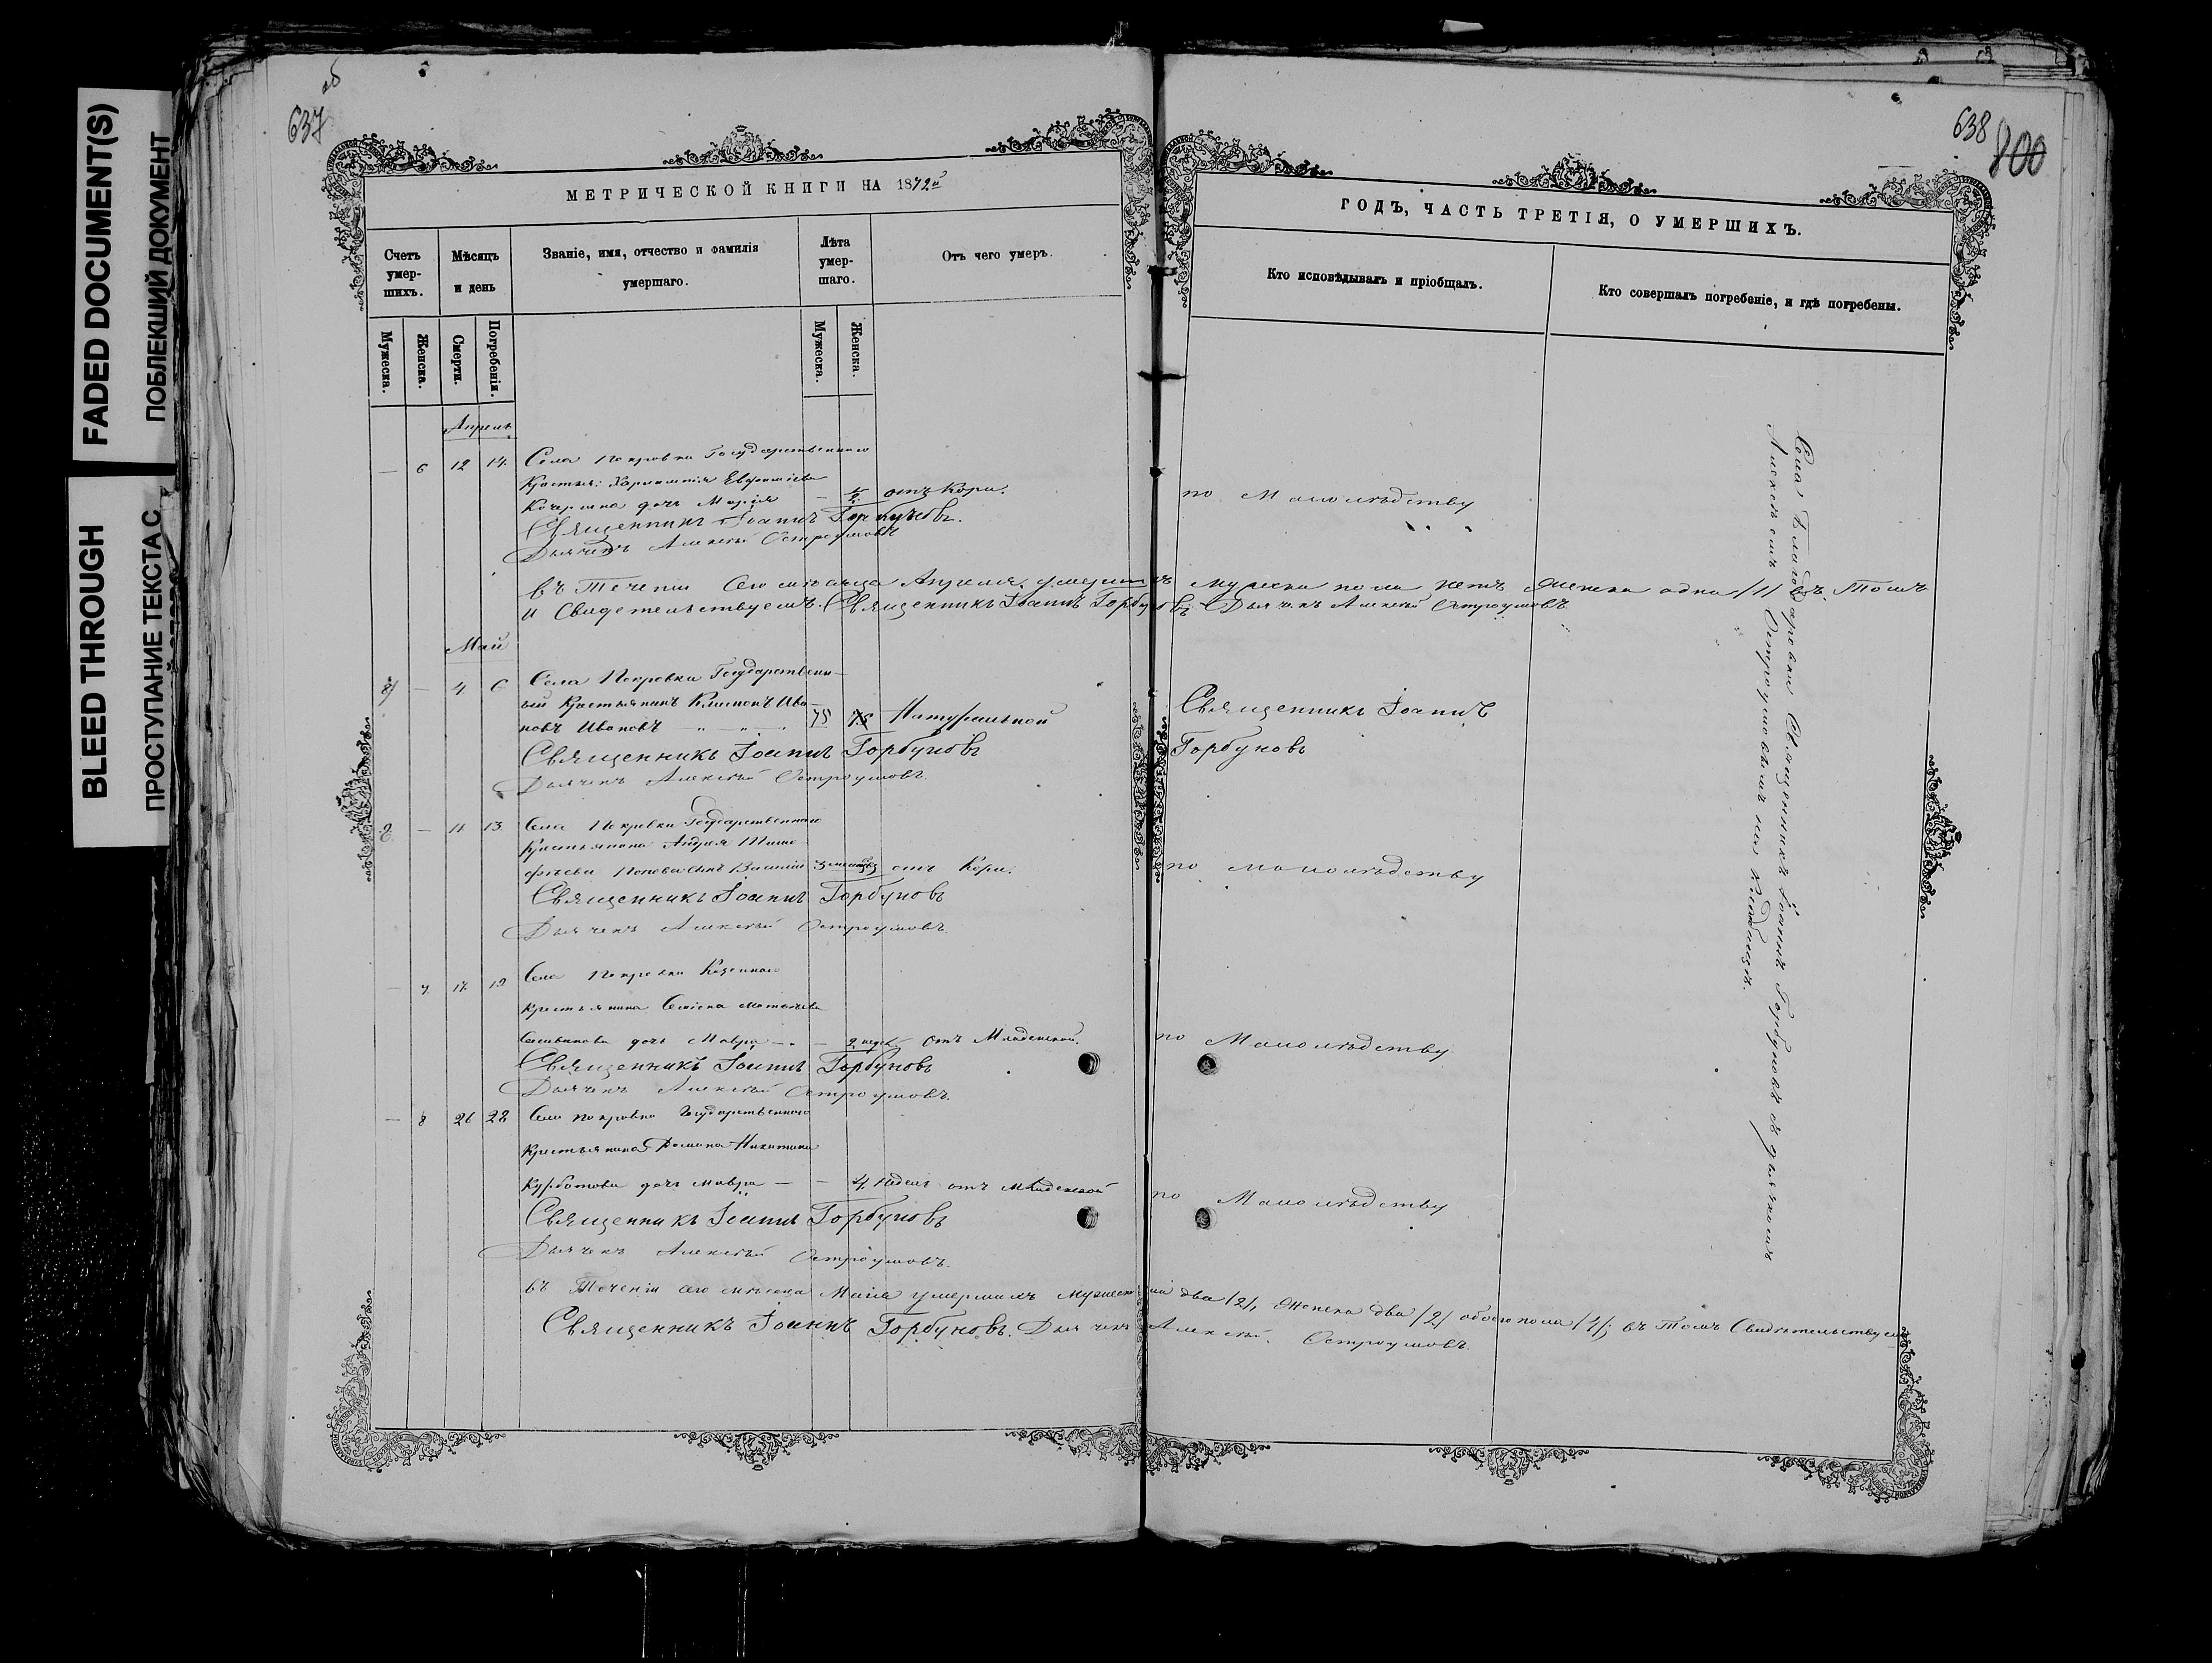 FADED DOCUMENT(S)
ПОБЛЕКШИЙ ДОКУМЕНТ
BLEED THROUGH
ПРОСТУПАНИЕ ТЕКСТА С
637
об
638
800
МЕТРИЧЕСКОЙ КНИГИ НА 1872й
ГОДЪ, ЧАСТЬ ТРЕТІЯ, О УМЕРШИХЪ.
Счетъ умер-шихъ.
Мѣсяцъ и день
Званіе, имя, отчество и фамилія умершаго.
Лѣта умер-шаго.
Отъ чего умеръ.
Кто исповѣдывалъ и пріобщалъ.
Кто совершалъ погребеніе, и гдѣ погребены.
Мужеска.
Женска.
Смерти.
Погребенія.
Мужеска.
Женска.
Апрель
— 6 12 14. Села Покровки Государственнаго
Крестья: Харлампія
дочь Марія — отъ Кори. по Малолѣдству
Священникъ Іоаннъ Горбуновъ.
Дьячекъ Алексѣй Остроумовъ
въ Теченіи Сего мѣсяца Апреля умершихъ мужска пола нетъ женска одна /1/ въ Томъ
и Свидетельствуемъ. Священникъ Іоаннъ Горбуновъ Дьячекъ Алексѣй Остроумовъ
Май
— 4 6 Села Покровки Государственн-
ый Крестьянинъ Климонъ Ива-
новъ Ивановъ 75 75 Натуральной Священникъ Іоаннъ
Священникъ Іоаннъ Горбуновъ Горбуновъ
Дьячекъ Алексѣй Остроумовъ.
— 11 13 Села Покровки Государственнаго
Крестьянина Андрея Тимо-
фѣева Попова сынъ Василій 3 отъ Кори. по малолѣдству
Священникъ Іоаннъ Горбуновъ
Дьячекъ Алексѣй Остроумовъ.
— 7 17 19 Села Покровки Казеннаго
Крестьянина
дочь Мавра — 2 недѣ отъ Младенской. по Малолѣдству
Священникъ Іоаннъ Горбуновъ
Дьячекъ Алексѣй Остроумовъ.
— 8 26 28 Села Покровки Государственнаго
Крестьянина Романа Никитина
Курбатова дочь Мавра — — 4 недели отъ Младенской по Малолѣдству
Священникъ Іоаннъ Горбуновъ
Дьячекъ Алексѣй Остроумовъ.
въ Теченіи сего мѣсяца Маія умершихъ мужеска два /2/, женска два /2/ обоего пола /4/; въ Томъ Свидѣтельствуемъ
Священникъ Іоаннъ Горбуновъ. Дьячекъ Алексѣй. Остроумовъ.
Села Благодаровки Священникъ Іоаннъ Горбуновъ съ дьячкомъ
Алексѣемъ Остроумовымъ на Кладбищѣ.